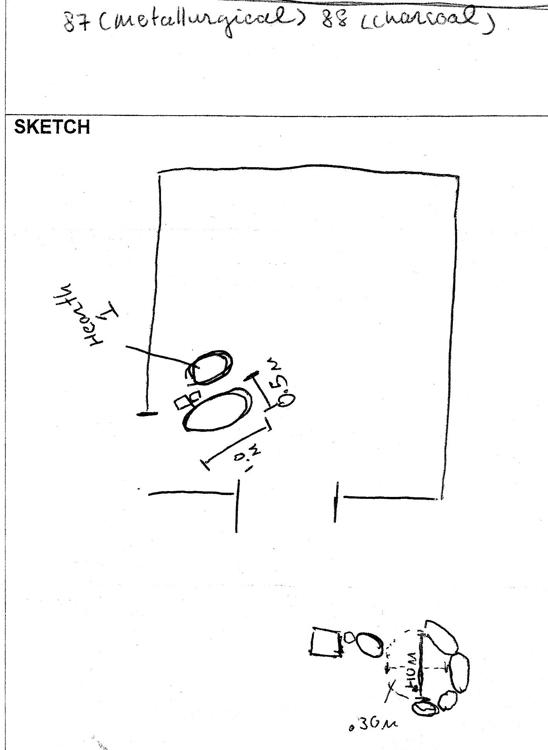 87 (metallurgical) 88 (charcoal)
SKETCH
Hearth
1
0.5 M
1.0 M
.30M